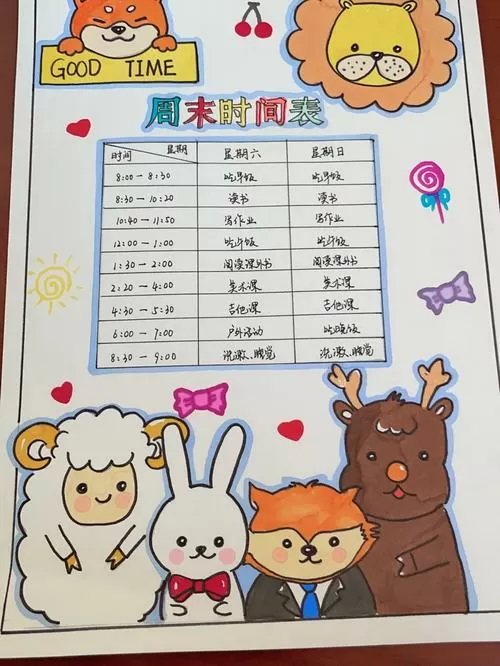 GOOD TIME
周末时间表
时间 星期 星期六 星期日
8:00-8:30 吃早饭 吃早饭
8:30-10:20 读书 读书
10:40-11:50 写作业 写作业
12:00-1:00 吃午饭 吃午饭
1:30-2:00 阅读课外书 阅读课外书
2:20-4:00 美术课 美术课
4:30-5:30 吉他课 吉他课
6:00-7:00 户外活动 吃晚饭
8:30-9:00 洗漱、睡觉 洗漱、睡觉